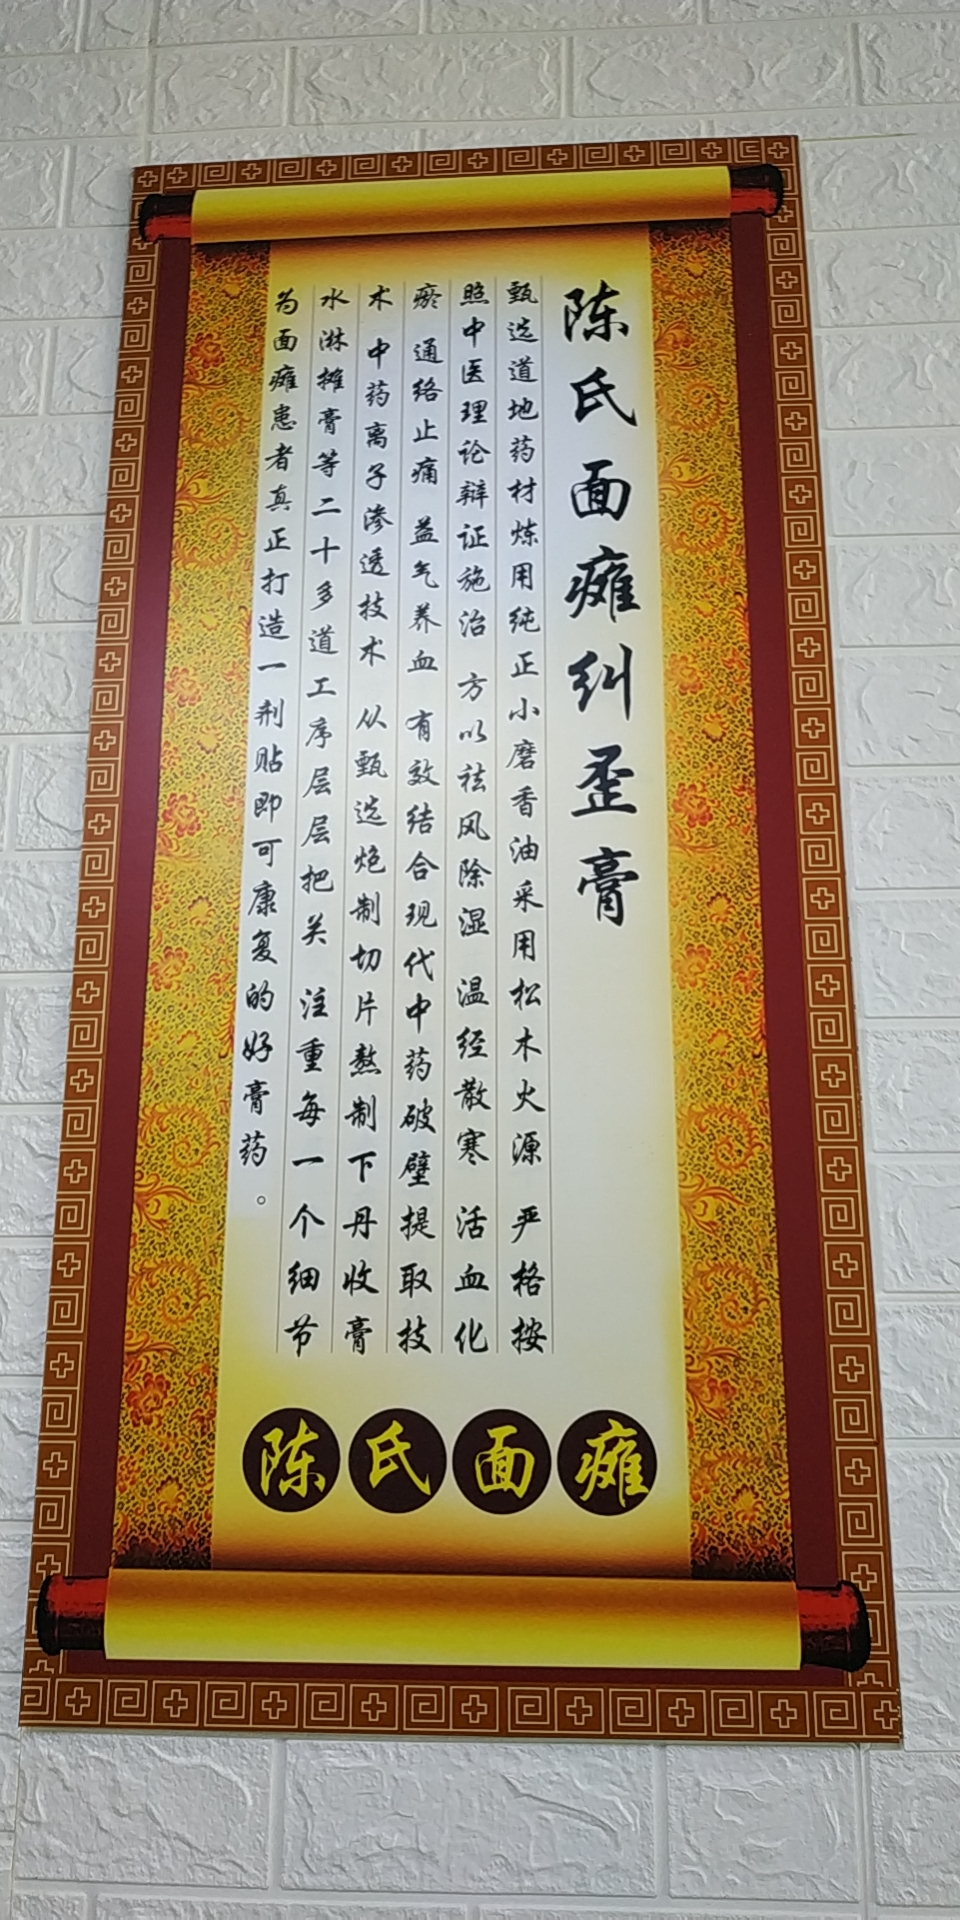 陈氏面瘫纠歪膏
甄选道地药材炼用纯正小磨香油采用松木火源 严格按
照中医理论辩证施治 方以祛风除湿 温经散寒 活血化
瘀 通络止痛 益气养血 有效结合现代中药破壁提取技
术 中药离子渗透技术 从甄选炮制切片熬制下丹收膏
水淋摊膏等二十多道工序层层把关 注重每一个细节
为面瘫患者真正打造一剂贴即可康复的好膏药。
陈氏面瘫